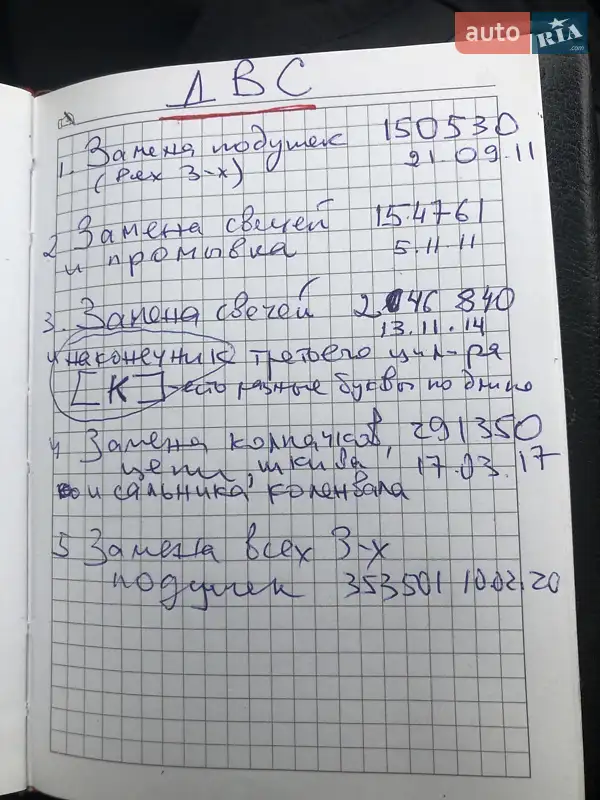 auto RIA .com
ДВС
1. Замена подушек 150530
(всех 3-х) 21.09.11
2 Замена свечей 154761
и промывка 5.11.11
3. Замена свечей 246 840
13.11.14
и наконечник третьего цил-ра
[К] разные буквы по длине
4 Замена колпачков, 291350
цепи, шкива 17.03.17
и сальника коленвала
5 Замена всех 3-х
подушек 353501 10.02.20